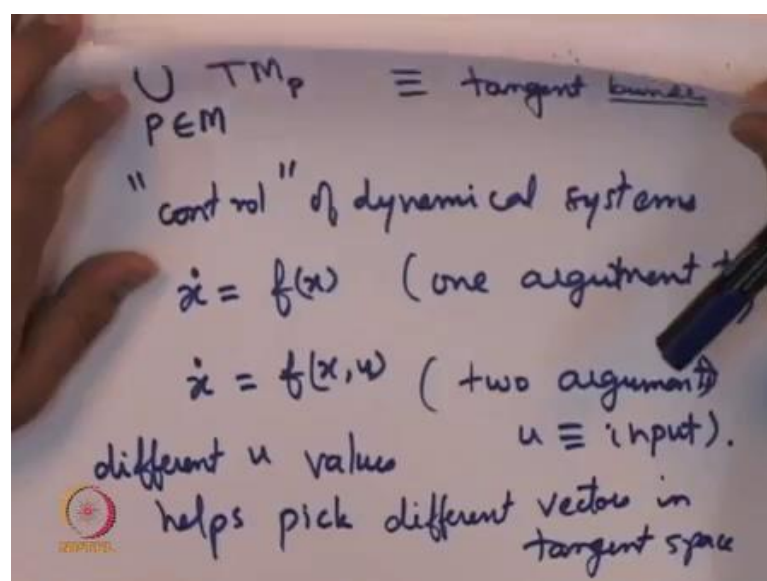 ∪ TM_p ≡ tangent
p∈M
"control" of dynamical systems
ẋ = f(x) (one argument
ẋ = f(x, u) (two arguments
u ≡ input).
different u values
helps pick different vectors in
tangent space
NPTEL